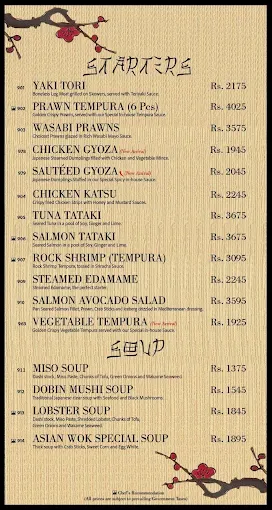 STARTERS
901 YAKI TORI Rs. 2175
Boneless Leg Meat grilled on Skewers, served with Teriyaki Sauce.
902 PRAWN TEMPURA (6 Pcs) Rs. 4025
Golden Crispy Prawns, served with our Special in house Tempura Sauce.
903 WASABI PRAWNS Rs. 3575
Chedared Prawns glazed in Rich Wasabi Mayo Sauce.
978 CHICKEN GYOZA (New Arrival) Rs. 1945
Japanese Steamed Dumplings filled with Chicken and Vegetable Mince.
979 SAUTÉED GYOZA (New Arrival) Rs. 2045
Japanese Dumplings Stuffed in our Special Spicy in-house Sauce.
904 CHICKEN KATSU Rs. 2245
Crispy fried Chicken Strips with Honey and Mustard Sauces.
905 TUNA TATAKI Rs. 3675
Seared Tuna in a pool of Soy, Ginger and Lime.
906 SALMON TATAKI Rs. 3675
Seared Salmon in a pool of Soy, Ginger and Lime.
907 ROCK SHRIMP (TEMPURA) Rs. 3095
Rock Shrimp Tempura, tossed in Sriracha Sauce.
908 STEAMED EDAMAME Rs. 2245
Steamed Edamame, the perfect starter.
910 SALMON AVOCADO SALAD Rs. 3595
Pan Seared Salmon Fillet, Prawn, Crab Sticks and Iceberg drizzled in Mediterranean dressing.
960 VEGETABLE TEMPURA (New Arrival) Rs. 1925
Golden Crispy Vegetable Tempura served with our Special in-house Sauce.
SOUP
911 MISO SOUP Rs. 1375
Dashi stock, Miso Paste, Chunks of Tofu, Green Onions and Wakame Seaweed.
912 DOBIN MUSHI SOUP Rs. 1545
Traditional Japanese clear soup with Seafood and Black Mushrooms.
913 LOBSTER SOUP Rs. 1845
Dashi stock, Miso Paste, Shredded Lobster, Chunks of Tofu,
Green Onions and Wakame Seaweed.
914 ASIAN WOK SPECIAL SOUP Rs. 1895
Thick soup with Crab Sticks, Sweet Corn and Egg White.
Chef's Recommendation
(All prices are subject to prevailing Government Taxes)